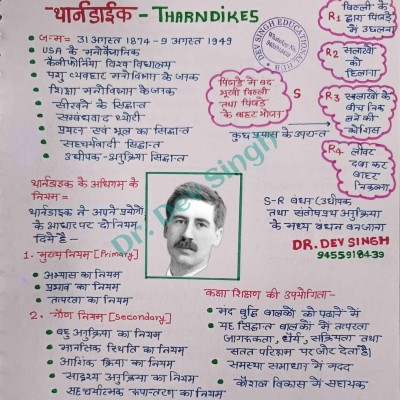 थार्नडाईक - THARNDIKES
जन्म = 31 अगस्त 1874 - 9 अगस्त 1949
USA के मनोवैज्ञानिक
कैलीफोर्निया विश्व विद्यालय
पशु व्यवहार मनोविज्ञान के जनक
शिक्षा मनोविज्ञान के जनक
सीखने के सिद्धान्त
सम्बन्धवाद थ्योरी
प्रयत्न एवं भूल का सिद्धान्त
सहचर्यवादी सिद्धान्त
उद्दीपक-अनुक्रिया सिद्धान्त
DEV SINGH EDUCATIONAL HUB
WhatsApp No.
पिंजडे में बंद
भूखी बिल्ली
तथा पिंजडे
के बाहर भोजन
S
कुछ प्रयास के उपरान्त
बिल्ली के
R1 द्वारा पिंजडे
में उछलना
R2 सलाखों
को
हिलाना
R3 सलाखों के
बीच निकलने की
कोशिश
R4 लीवर
दबा कर
बाहर
निकलना
S-R बंधन (उद्दीपक
तथा संतोषप्रद अनुक्रिया
के मध्य बंधन बनजाना
DR. DEV SINGH
9455918439
थार्नडाइक के अधिगम के
नियम=
थार्नडाईक ने अपने प्रयोगों
के आधार पर दो नियम
दिये है -
1. मुख्य नियम [Primary]
अभ्यास का नियम
प्रभाव का नियम
तत्परता का नियम
2. गौण नियम [Secondary]
बहु अनुक्रिया का नियम
मानसिक स्थिति का नियम
आंशिक क्रिया का नियम
सादृश्य अनुक्रिया का नियम
सहचर्यात्मक रूपान्तरण का नियम
कक्षा शिक्षण की उपयोगिता-
मंद बुद्धि बालकों को पढाने में
यह सिद्धान्त बालकों में तत्परता
जागरूकता, धैर्य, सक्रियता तथा
सतत परिश्रम पर जोर देता है।
समस्या समाधान में मदद
कौशल विकास में सहायक
Dr. Dev Singh